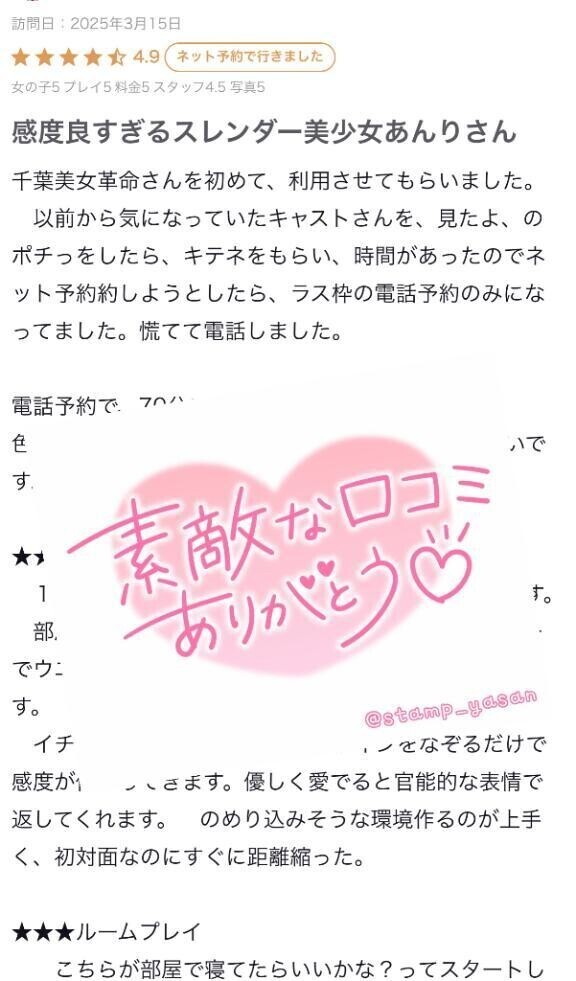 訪問日：2025年3月15日
4.9 ネット予約で行きました
女の子5 プレイ5 料金5 スタッフ4.5 写真5
感度良すぎるスレンダー美少女あんりさん
千葉美女革命さんを初めて、利用させてもらいました。
以前から気になっていたキャストさんを、見たよ、の
ポチっをしたら、キテネをもらい、時間があったのでネ
ット予約約しようとしたら、ラス枠の電話予約のみにな
ってました。慌てて電話しました。
電話予約で、70分
色
いで
す。
素敵な口コミ
ありがとう
★★
1
す。
部
でウ
す。
@stamp_yasan
イチ
をなぞるだけで
感度が
てきます。優しく愛でると官能的な表情で
返してくれます。 のめり込みそうな環境作るのが上手
く、初対面なのにすぐに距離縮った。
★★★ルームプレイ
こちらが部屋で寝てたらいいかな？ってスタートし